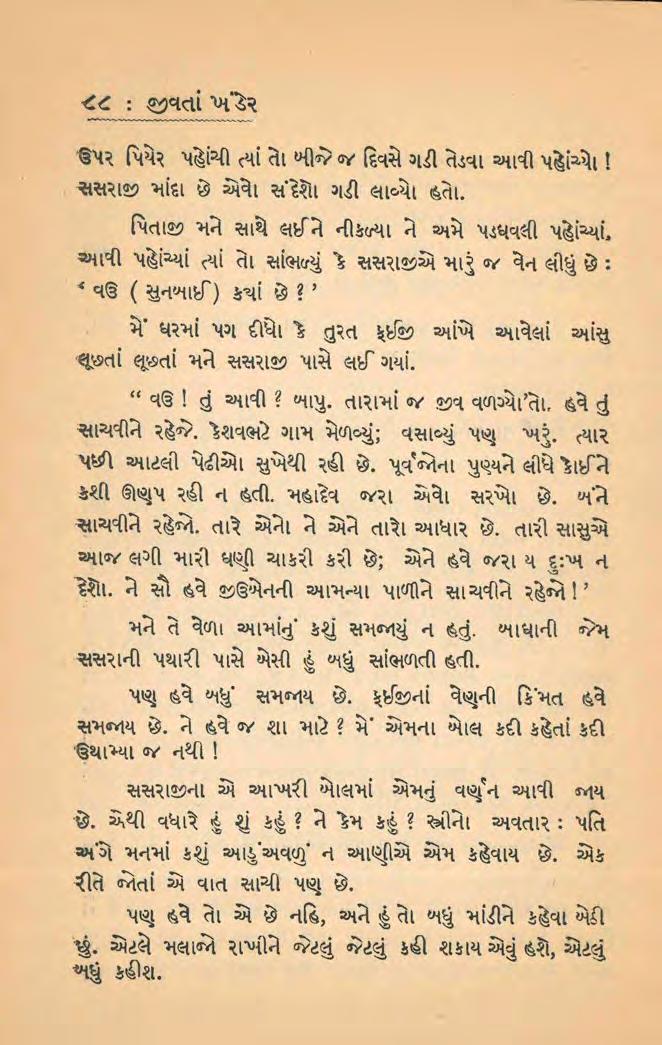 ૮૮ : જીવતાં ખંડેર
ઉપર પિયેર પહોંચી ત્યાં તો બીજે જ દિવસે ગડી તેડવા આવી પહોંચ્યો !
સસરાજી માંદા છે એવો સંદેશો ગડી લાવ્યો હતો.
પિતાજી મને સાથે લઈને નીકળ્યા ને અમે પડધવલી પહોંચ્યાં.
આવી પહોંચ્યાં ત્યાં તો સાંભળ્યું કે સસરાજીએ મારું જ વેન લીધું છે :
‘ વઉ ( સુનબાઈ ) ક્યાં છે ? ’
મેં ઘરમાં પગ દીધો કે તુરત ફઈજી આંખે આવેલાં આંસુ
લૂછતાં લૂછતાં મને સસરાજી પાસે લઈ ગયાં.
“ વઉ ! તું આવી ? બાપુ. તારામાં જ જીવ વળગ્યો’તો. હવે તું
સાચવીને રહેજે. કેશવભટે ગામ મેળવ્યું; વસાવ્યું પણ ખરું. ત્યાર
પછી આટલી પેઢીઓ સુખેથી રહી છે. પૂર્વજોના પુણ્યને લીધે કોઈને
કશી ઊણપ રહી ન હતી. મહાદેવ જરા એવો સરખો છે. બંને
સાચવીને રહેજો. તારે એનો ને એને તારો આધાર છે. તારી સાસુએ
આજ લગી મારી ઘણી ચાકરી કરી છે; એને હવે જરા ય દુઃખ ન
દેશો. ને સૌ હવે જીઉબેનની આમન્યા પાળીને સાચવીને રહેજો ! ’
મને તે વેળા આમાંનું કશું સમજાયું ન હતું. બાઘાની જેમ
સસરાની પથારી પાસે બેસી હું બધું સાંભળતી હતી.
પણ હવે બધું સમજાય છે. ફઈજીનાં વેણની કિંમત હવે
સમજાય છે. ને હવે જ શા માટે ? મેં એમના બોલ કદી કહેતાં કદી
ઉથામ્યા જ નથી !
સસરાજીના એ આખરી બોલમાં એમનું વર્ણન આવી જાય
છે. એથી વધારે હું શું કહું ? ને કેમ કહું ? સ્ત્રીનો અવતાર : પતિ
અંગે મનમાં કશું આડુંઅવળું ન આણીએ એમ કહેવાય છે. એક
રીતે જોતાં એ વાત સાચી પણ છે.
પણ હવે તો એ છે નહિ, અને હું તો બધું માંડીને કહેવા બેઠી
છું. એટલે મલાજો રાખીને જેટલું જેટલું કહી શકાય એવું હશે, એટલું
બધું કહીશ.